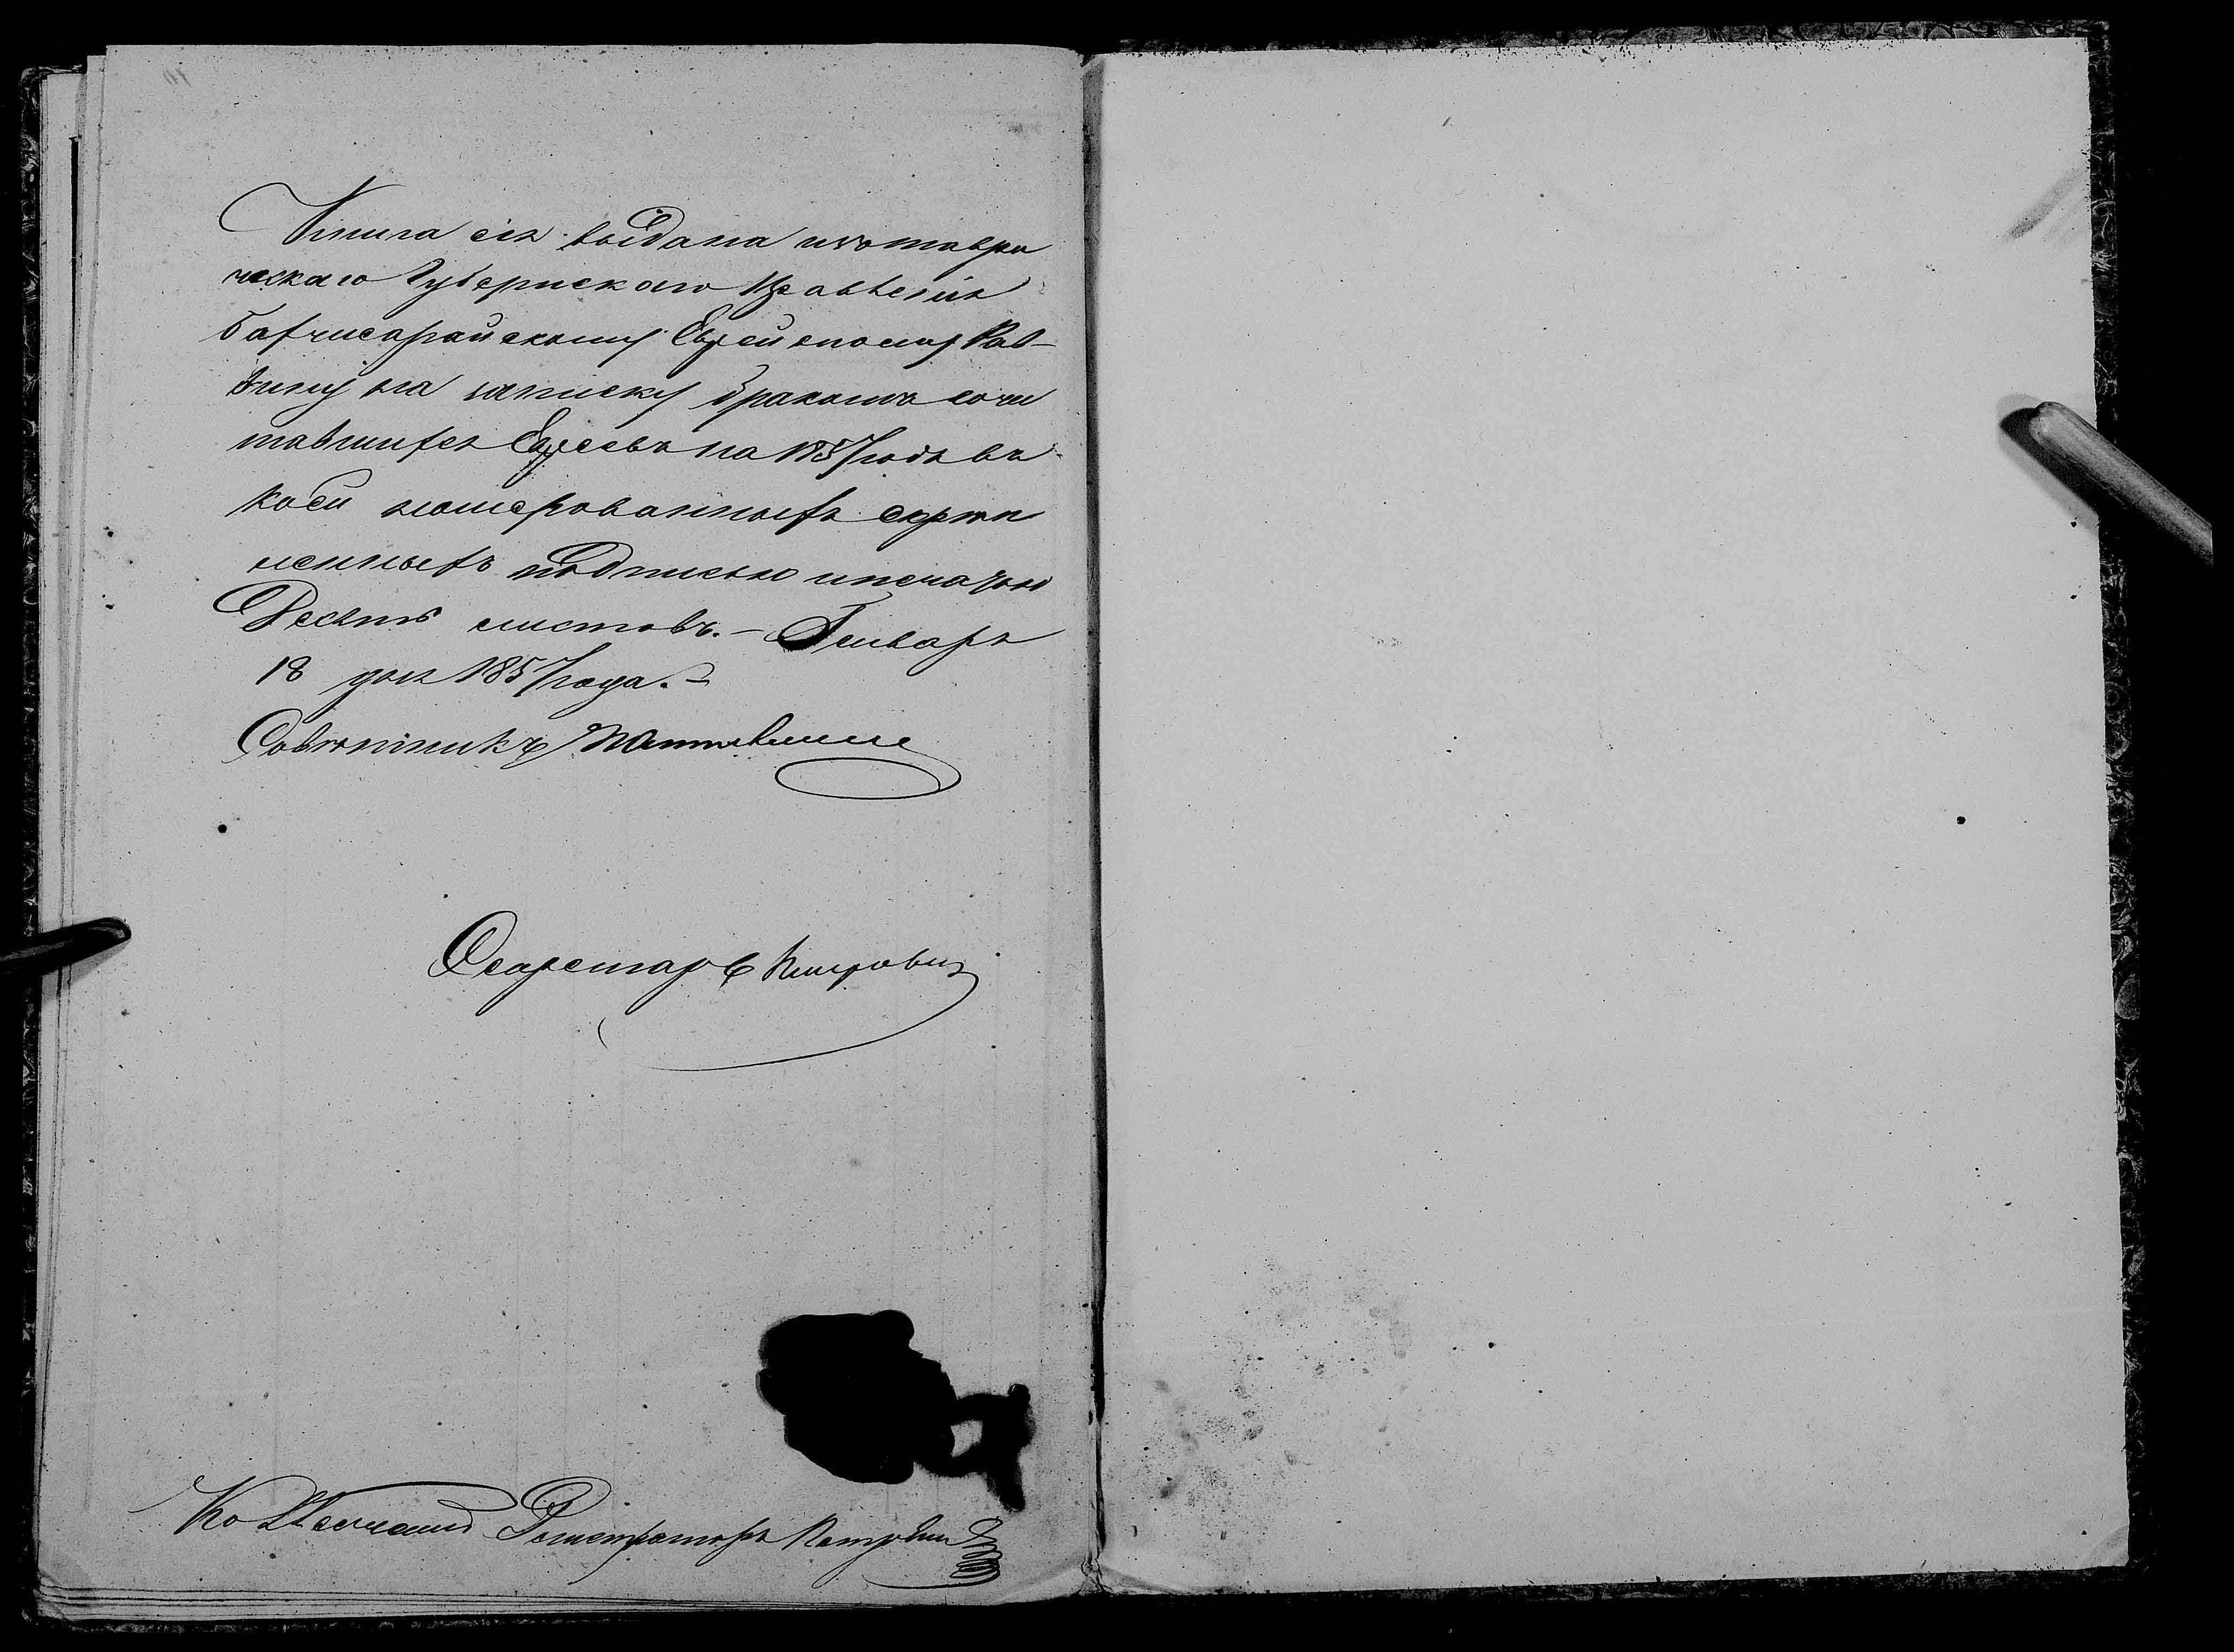 Книга сія выдана изъ таври
ческаго Губернскаго Правленія
Бахчисарайскому Еврейскому Рав-
вину на записку бракомъ сочи
тавшихся Евреевъ на 1857 годъ въ
коей номерованныхъ скрѣп
ленныхъ подписью и печатью
Десять листовъ.— Генваря
18 дня 1857 года.—
Совѣтникъ
Секретарь
Регистраторъ